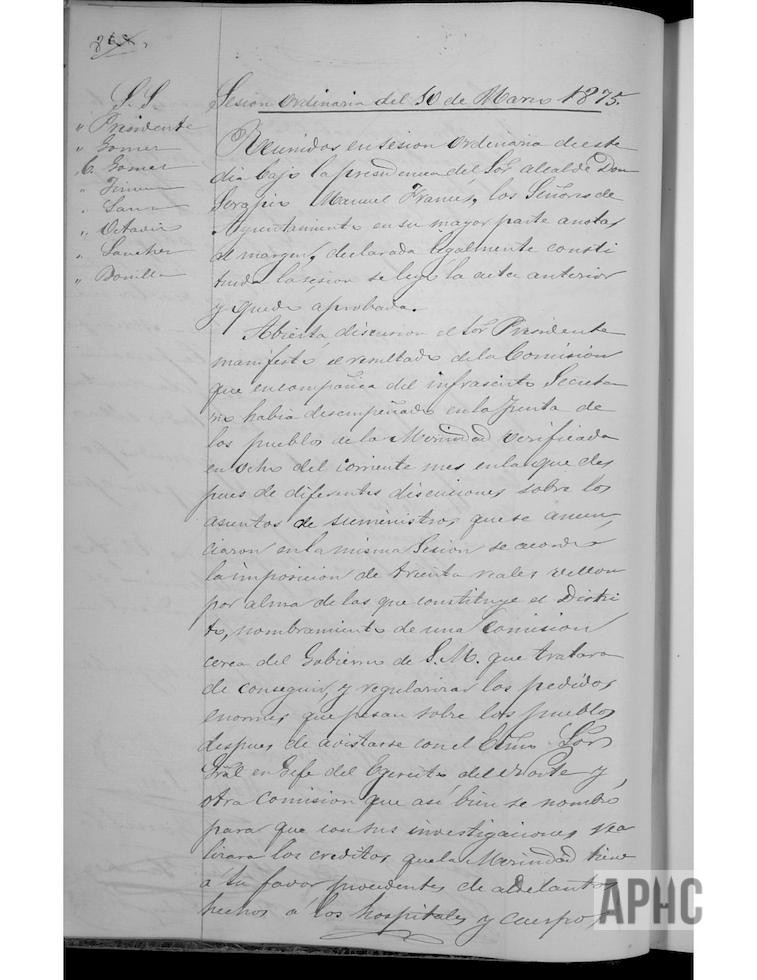 S.S.
" Presidente
" Gomez
C. Gomez
"
" Sanz
" Octavio
" Sanchez
" Bonilla
Sesion ordinaria del 10 de Marzo 1875.
Reunidos en sesion ordinaria de este
dia bajo la presidencia del Sor. Alcalde Don
Serapio Manuel Frances, los Señores de
Ayuntamiento en su mayor parte anotas
al margen, declarada legalmente consti
tuida la sesion se leyó la acta anterior
y quedó aprobada.
Abierta discusion el Sor. Presidente
manifestó el resultado de la Comision
que en compañia del infrascrito Secreta
rio habia desempeñado en la Junta de
los pueblos de la Merindad verificada
en ocho del corriente mes en la que des
pues de diferentes discusiones sobre los
asuntos de suministros que se anun
ciaron en la misma Sesion se acordó
la imposicion de treinta reales vellon
por alma de las que constituye el Distri
to, nombramiento de una Comision
cerca del Gobierno de S. M. que tratara
de conseguir, y regularizar los pedidos
enormes que pesan sobre los pueblos
despues de avistarse con el Exmo. Sor.
Gral en Gefe del Egercito del Norte y
otra comision que asi bien se nombró
para que con sus investigaciones rea
lizara los creditos que la Merindad tiene
á su favor procedentes de adelantos
hechos á los hospitales y cuerpos
APHC